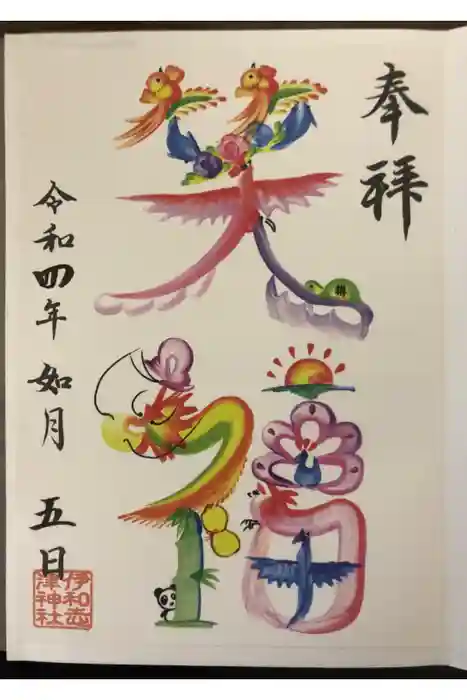 奉拝
笑福
令和四年 如月 五日
伊和志
津神社